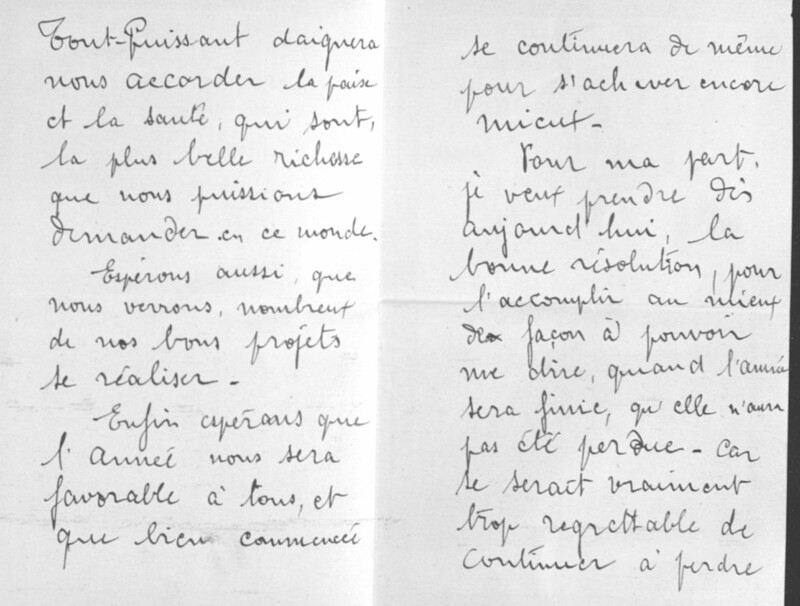 Tout-Puissant daignera
nous accorder la paix
et la santé, qui sont,
la plus belle richesse
que nous puissions
demander en ce monde.
Espérons aussi, que
nous verrons, nombreux
de nos bons projets
se réaliser -
Enfin espérons que
l'Anneé nous sera
favorable à tous, et
que bien commenceé
se continuera de même
pour s'achever encore
mieux -
Pour ma part,
je veux prendre dès
aujourd'hui, la
bonne résolution, pour
l'accomplir au mieux
de façon à pouvoir
me dire, quand l'année
sera finie, qu'elle n'aura
pas été perdue - Car
se serait vraiment
trop regrettable de
continuer à perdre